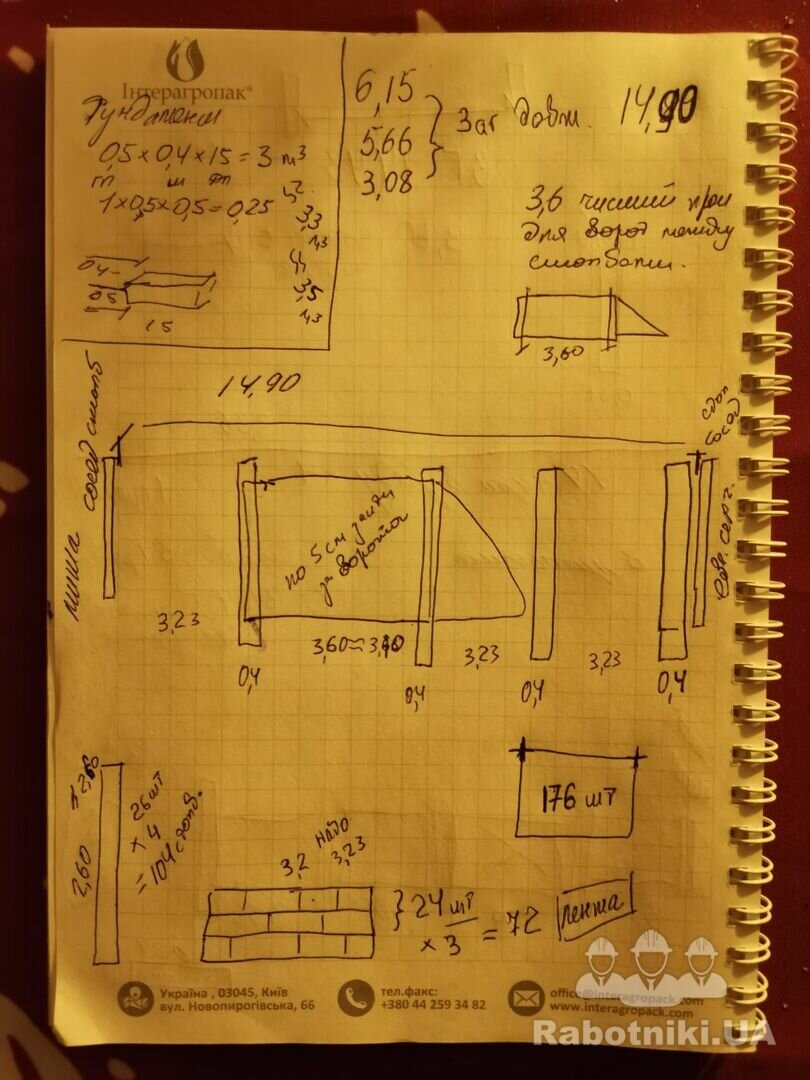 Інтерагропак®
Фундамент
0,5 x 0,4 x 15 = 3 м³
гл ш дл
1 x 0,5 x 0,5 = 0,25
3,3
1,3
3,5
1,3
0,4
0,5
15
6,15
5,66
3,08
Заг довж. 14,90
3,6 чистий
для ворот между
столбами.
3,60
14,90
сосед столб
столб
сосед
по 5 см
за ворота
3,23
3,60 =
3,23
3,23
0,4
0,4
0,4
0,4
176 шт
2,60
26 шт
x 4
= 104 столб.
надо
3,2 3,23
24 шт
x 3 = 72 лента
Україна , 03045, Київ
вул. Новопирогівська, 66
тел.факс:
+380 44 259 34 82
office@interagropack.com
www.interagropack.com
Rabotniki.UA